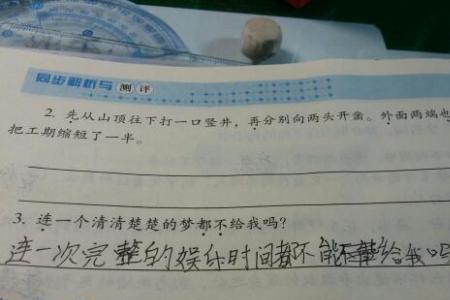 同步解析与测评
2. 先从山顶往下打一口竖井，再分别向两头开凿。外面两端也
把工期缩短了一半。
3. 连一个清清楚楚的梦都不给我吗？
连一次完整的娱乐时间都不能给我吗